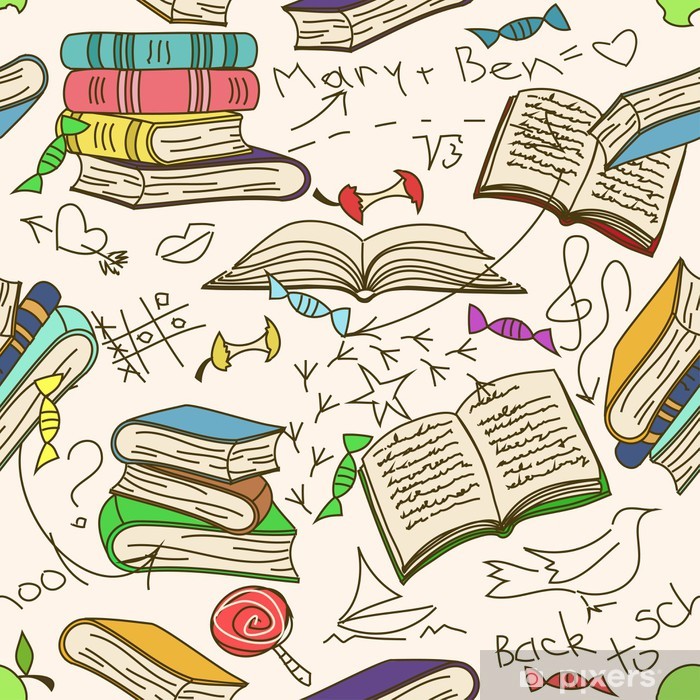 Mary + Ben = ♡
√3
?
hool
Back to sch
pixers